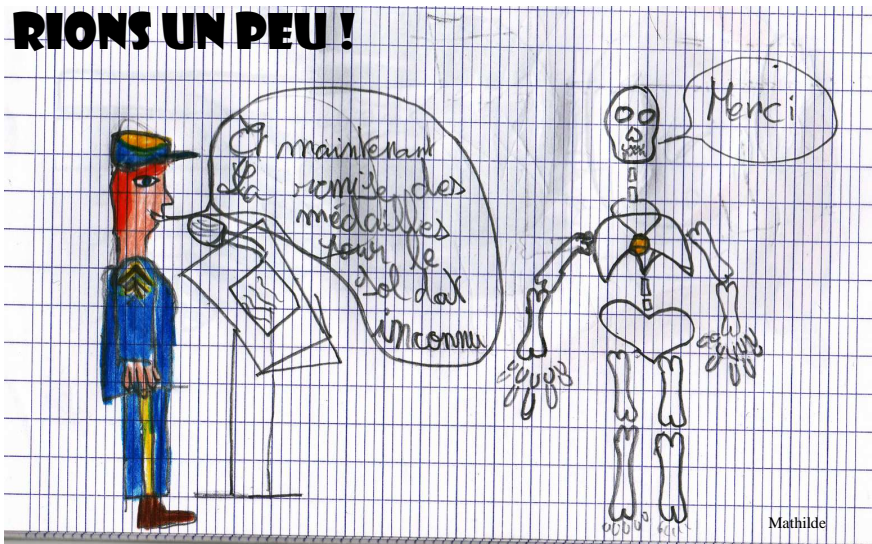 RIONS UN PEU !
Et maintenant
La remise des
médailles
pour le
soldat
inconnu
Merci
Mathilde